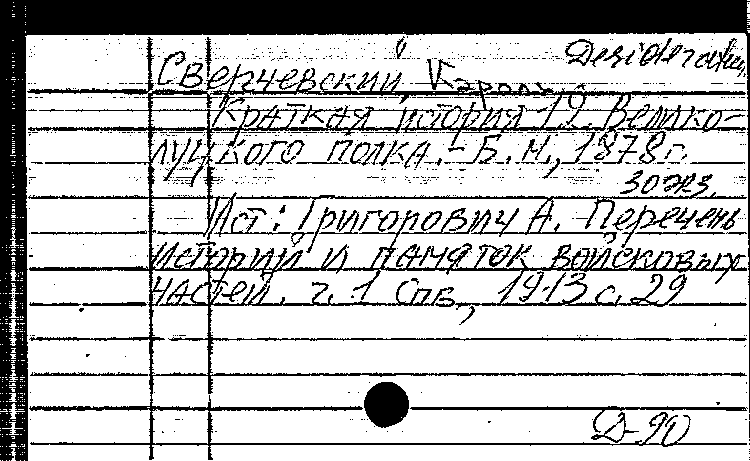 Desiderata
Сверчевский, Кароль.
Краткая история 12. Велико-
луцкого полка. - Б. м., 1878 г.
30 экз.
Ист: Григорович А. Перечень
историй и памяток войсковых
частей. ч. 1 Спб., 1913 с. 29
Д-90